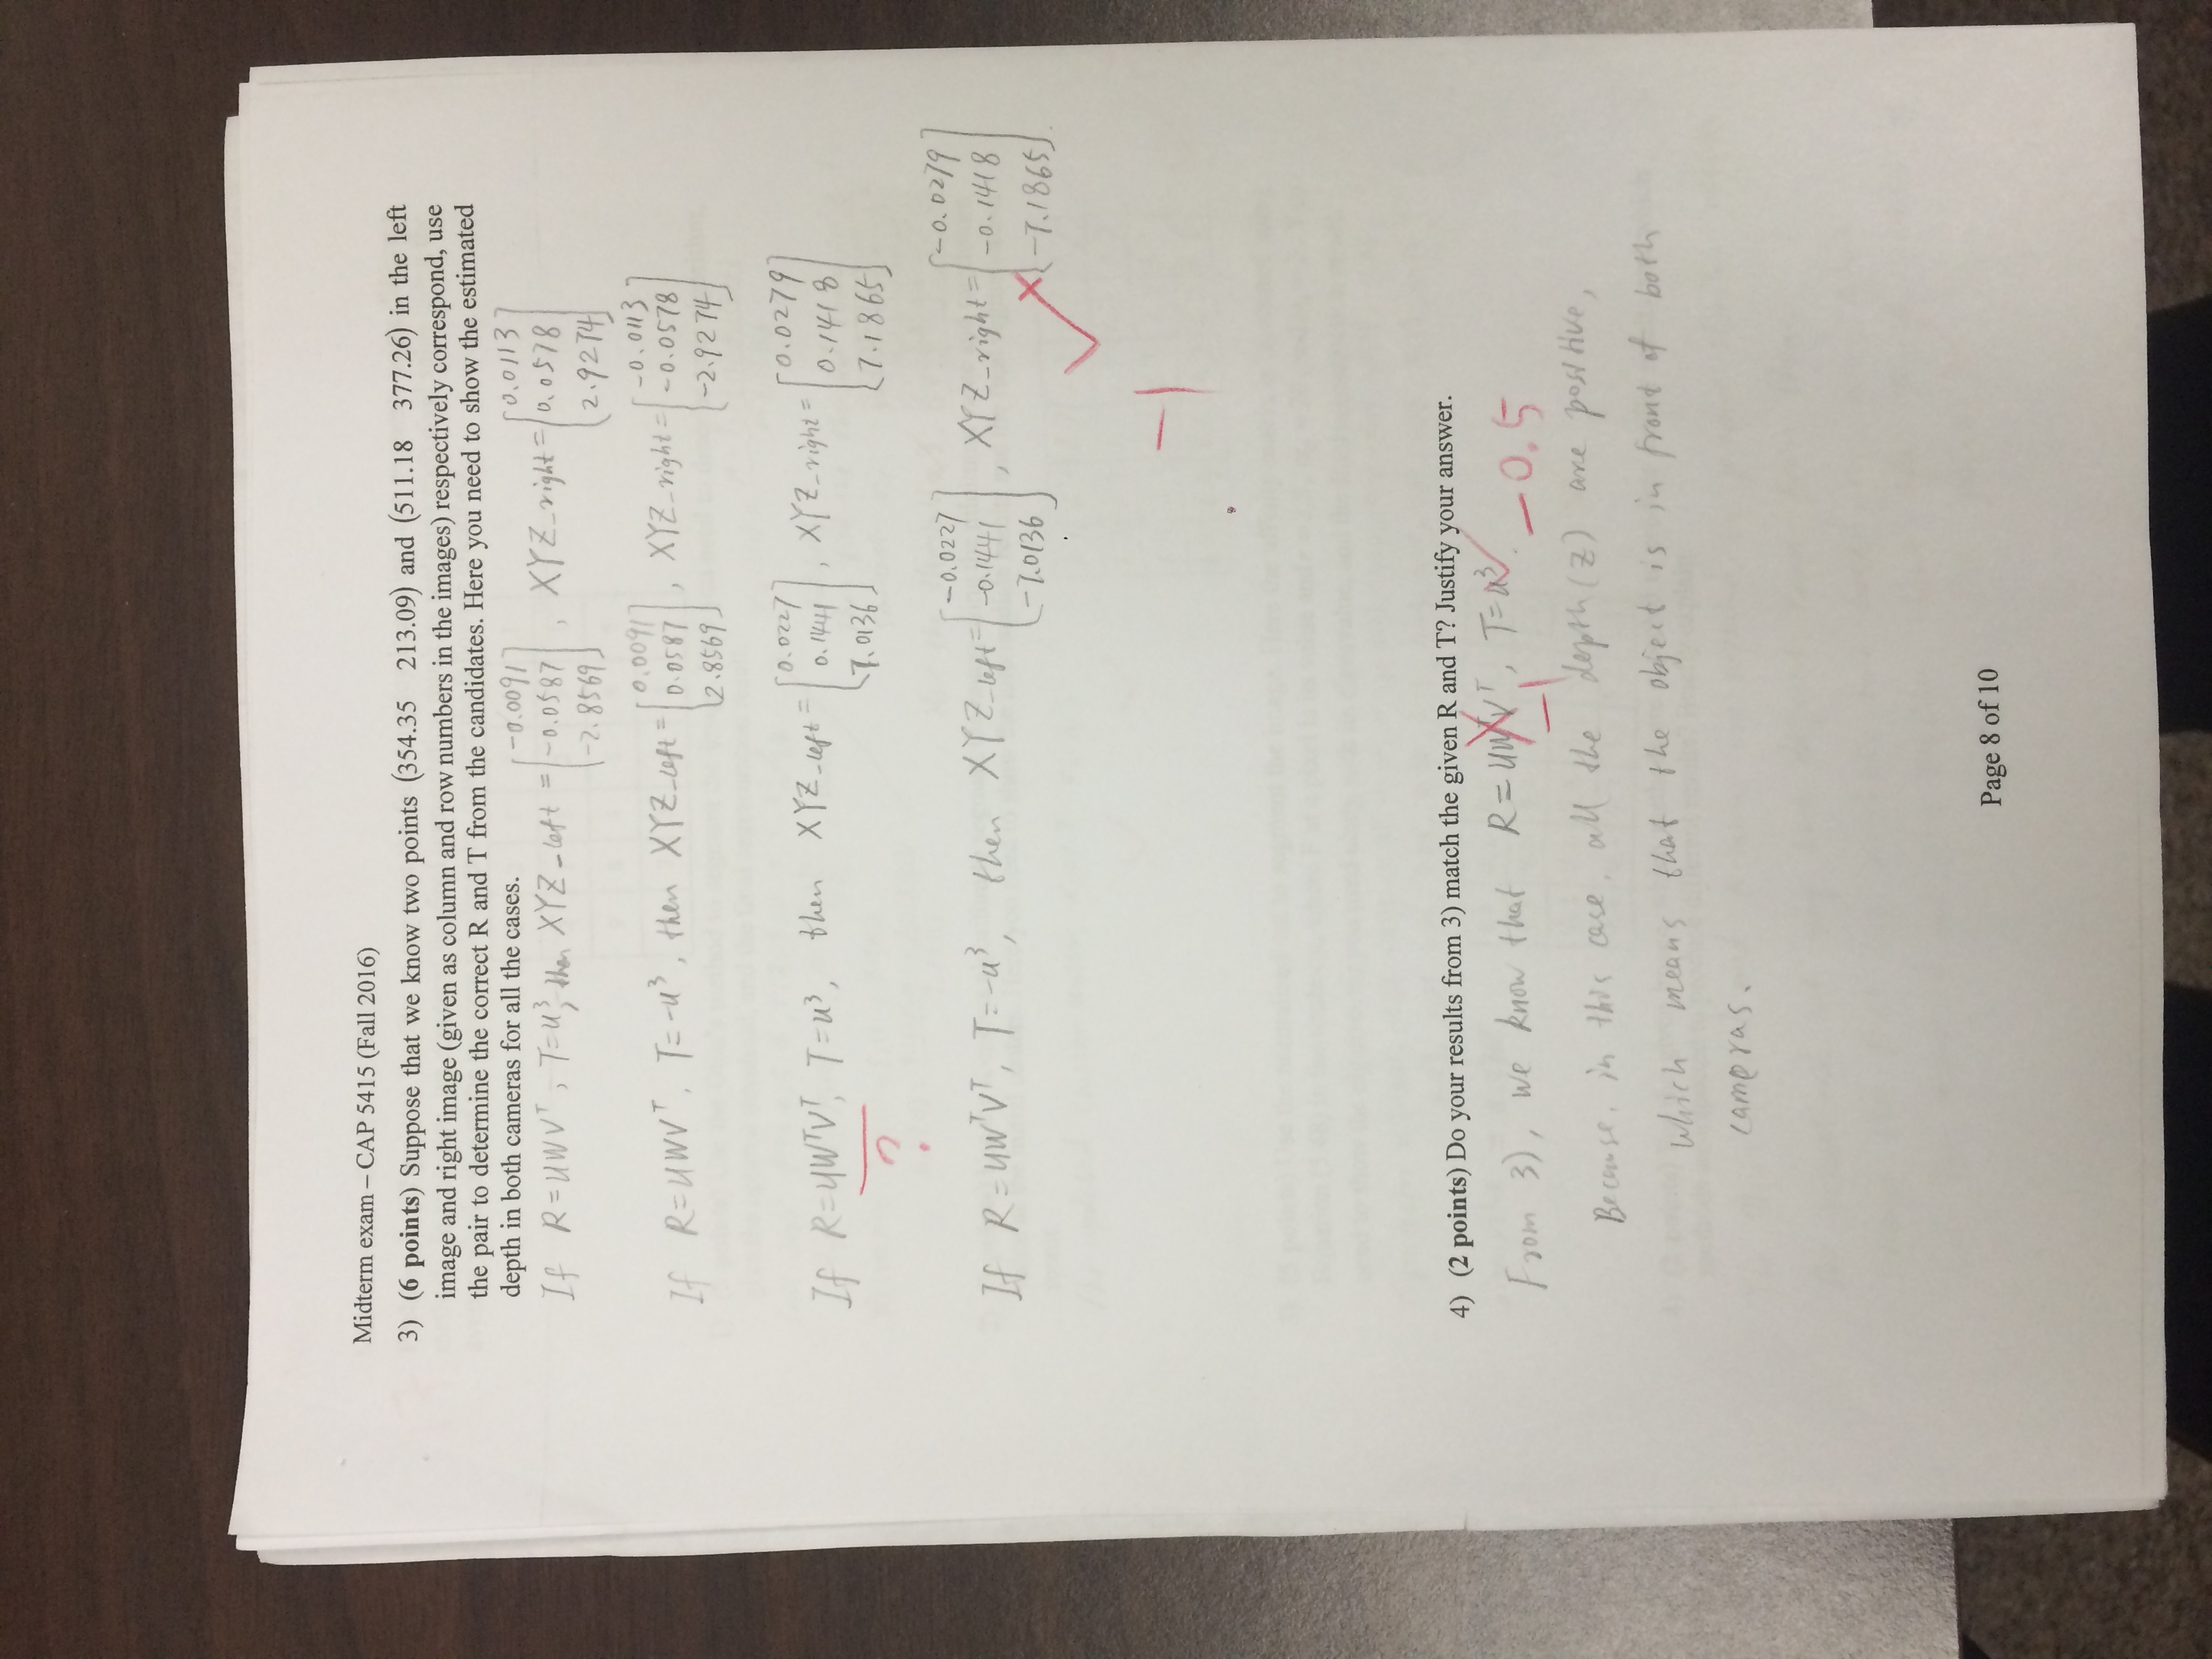 Midterm exam – CAP 5415 (Fall 2016)
3) (6 points) Suppose that we know two points (354.35 213.09) and (511.18 377.26) in the left
image and right image (given as column and row numbers in the images) respectively correspond, use
the pair to determine the correct R and T from the candidates. Here you need to show the estimated
depth in both cameras for all the cases.
If R = UWVᵀ, T=u³, then XYZ-left = [-0.0091 -0.0587 -2.8569], XYZ-right = [0.0113 0.0578 2.9274]
If R = UWVᵀ, T=-u³, then XYZ-left = [0.0091 0.0587 2.8569], XYZ-right = [-0.0113 -0.0578 -2.9274]
If R=UWᵀVᵀ, T=u³, then XYZ-left = [0.0227 0.1441 7.0136], XYZ-right = [0.0279 0.1418 7.1865]
?
If R=UWᵀVᵀ, T=-u³, then XYZ-left = [-0.0227 -0.1441 -7.0136], XYZ-right = [-0.0279 -0.1418 -7.1865]
-1
4) (2 points) Do your results from 3) match the given R and T? Justify your answer.
From 3), we know that R=UWᵀVᵀ, T=u³. -0.5
-1
Because, in this case, all the depth(z) are positive,
which means that the object is in front of both
cameras.
Page 8 of 10